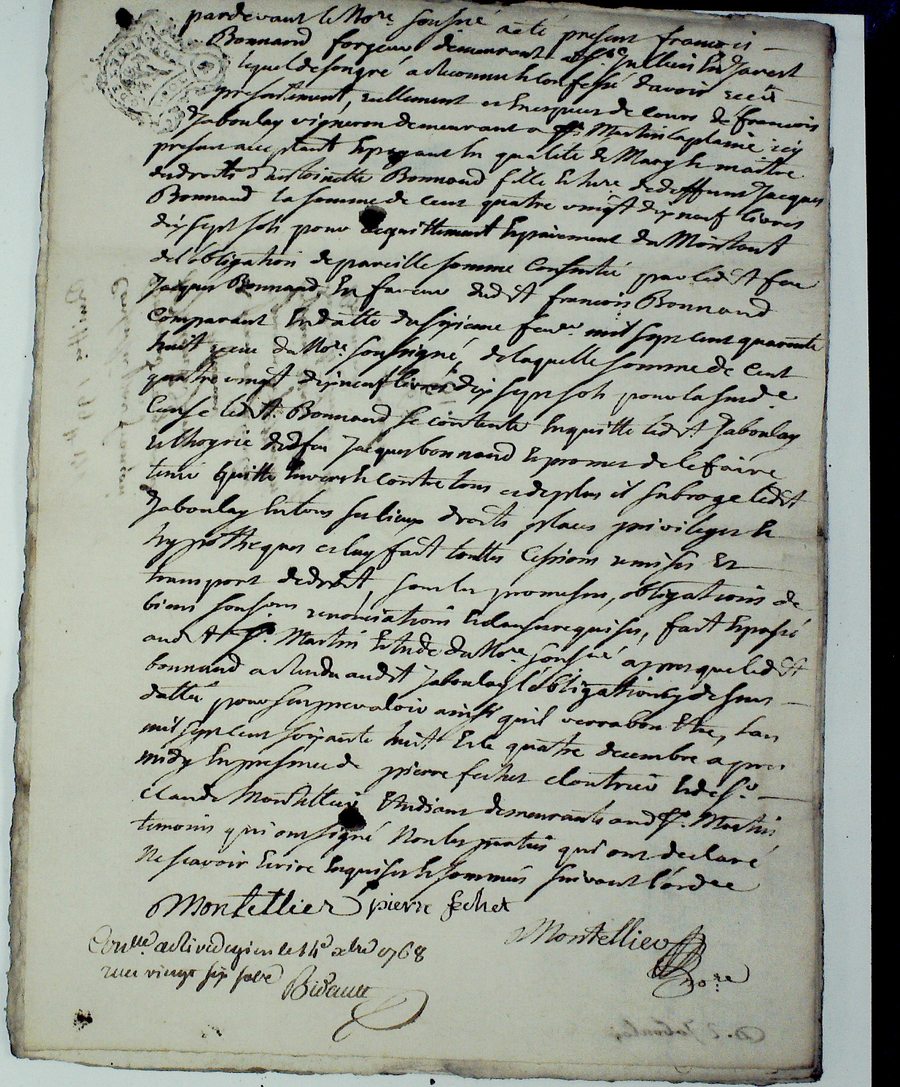 pardevant le No.re sousné a été présent francois
Bonnard forgeur demeurant a St Jullien En Jarest
lequel de son gré a Reconnu et Confessé d'avoir receu
presentement, reellement et En especes de cours de francois
Jaboulay vigneron demeurant a St Martin la plaine icy
present acceptant Et payant En qualité de Mary Et maitre
des droits d'antoinette Bonnard fille Et de deffunt Jacques
Bonnard la somme de Cent quatre vingt dix neuf livres
dix sept sols pour acquittement Et paiement du Montant
de l'obligation de pareille somme Consentie par led.t feu
Jacques Bonnard En faveur dud.t francois Bonnard
Comparant En datte du sixieme fevr. mil sept cent quarante
huit receue du No.re soussigné, de laquelle somme de Cent
quatre vingt dix neuf livres dix sept sols pour la susd.e
Cause led.t Bonnard se contente En quitte led.t Jaboulay
et l'hoyrie dud. feu Jacques bonnard Et promet de le faire
tenir quitte Envers Et Contre tous et de plus il subroge led.t
Jaboulay En tous ses lieux droits places privileges Et
hypotheques et luy fait touttes Cessions remises Et
transport de droit, sous les promesses, obligations de
biens renonciations Et clauses requises, fait Et passé
aud.t St. Martin Etude du No.re sousné apres que led.t
bonnard a Rendu aud.t Jaboulay l'obligation cy dessus
dattée pour s'en prevaloir ainsi qu'il verra bon Etre, l'an
mil sept cent soixante huit Et le quatre decembre apres
midy En presence de pierre fechet cloutrier Et de S.r
claude Montellier Etudiant demeurants aud. St. Martin
temoins qui ont signé Non les parties qui ont declaré
Ne scavoir Ecrire Enquises Et sommées suivant l'ord.ce
Montellier pierre fechet
Montellier
No.re
Con.lle a Rivedegier le 14e xbre 1768
receu vingt six sols